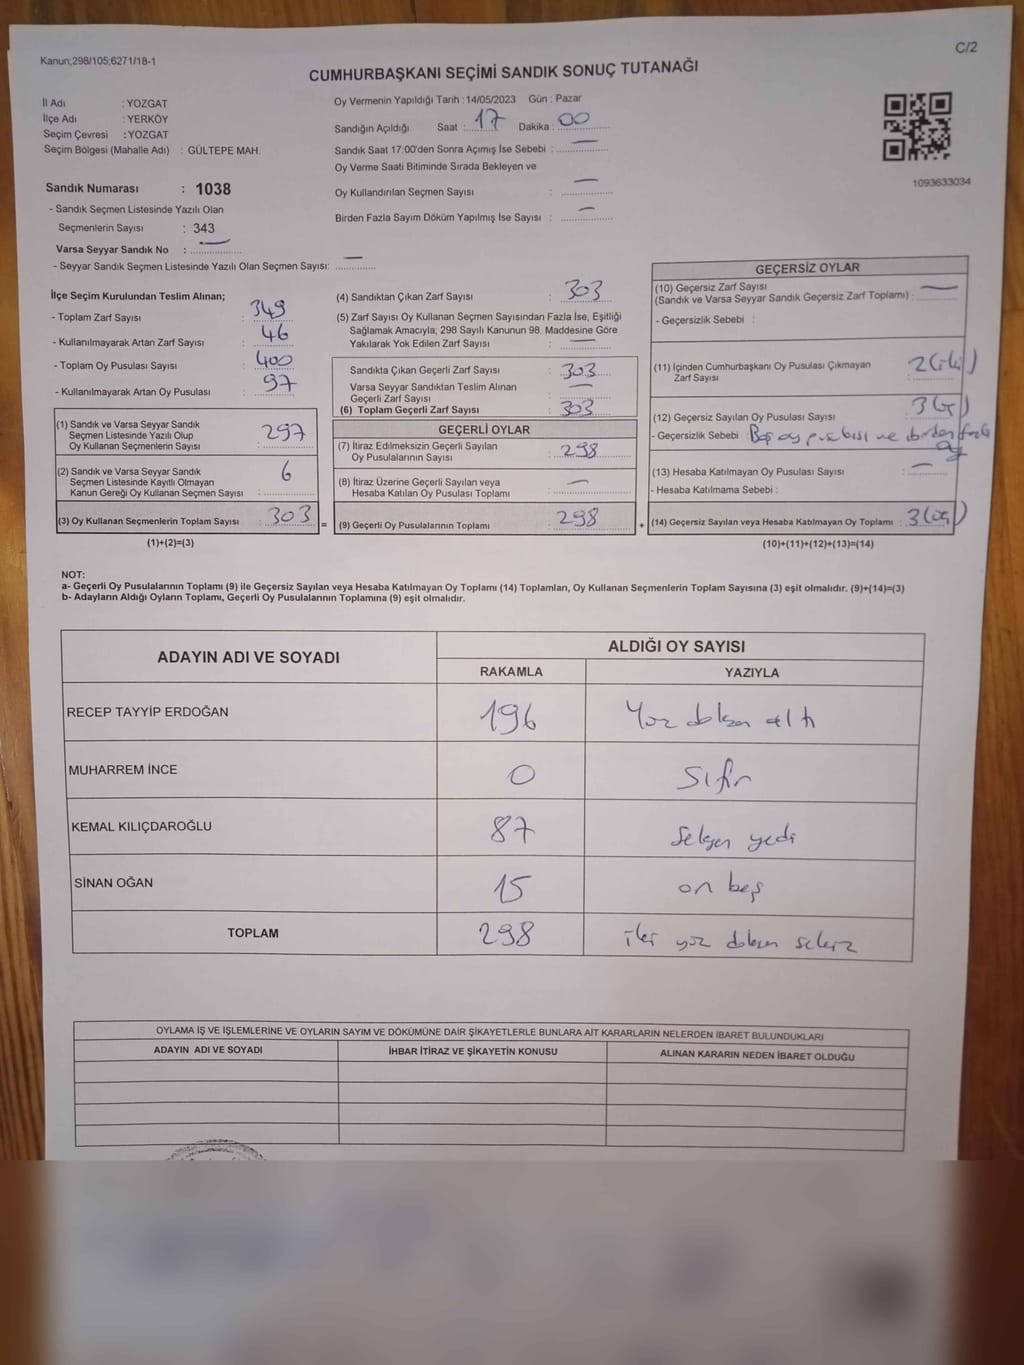 Kanun;298/105;6271/18-1
C/2
CUMHURBAŞKANI SEÇİMİ SANDIK SONUÇ TUTANAĞI
İl Adı : YOZGAT
İlçe Adı : YERKÖY
Seçim Çevresi : YOZGAT
Seçim Bölgesi (Mahalle Adı) : GÜLTEPE MAH.
Sandık Numarası : 1038
- Sandık Seçmen Listesinde Yazılı Olan
Seçmenlerin Sayısı : 343
Varsa Seyyar Sandık No : —
- Seyyar Sandık Seçmen Listesinde Yazılı Olan Seçmen Sayısı: —
Oy Vermenin Yapıldığı Tarih : 14/05/2023 Gün : Pazar
Sandığın Açıldığı Saat : 17 Dakika : 00
Sandık Saat 17:00'den Sonra Açımış İse Sebebi : —
Oy Verme Saati Bitiminde Sırada Bekleyen ve
Oy Kullandırılan Seçmen Sayısı : —
Birden Fazla Sayım Döküm Yapılmış İse Sayısı : —
1093633034
İlçe Seçim Kurulundan Teslim Alınan;
- Toplam Zarf Sayısı : 349
- Kullanılmayarak Artan Zarf Sayısı : 46
- Toplam Oy Pusulası Sayısı : 400
- Kullanılmayarak Artan Oy Pusulası : 97
(1) Sandık ve Varsa Seyyar Sandık
Seçmen Listesinde Yazılı Olup
Oy Kullanan Seçmenlerin Sayısı : 297
(2) Sandık ve Varsa Seyyar Sandık
Seçmen Listesinde Kayıtlı Olmayan
Kanun Gereği Oy Kullanan Seçmen Sayısı : 6
(3) Oy Kullanan Seçmenlerin Toplam Sayısı : 303 =
(1)+(2)=(3)
(4) Sandıktan Çıkan Zarf Sayısı : 303
(5) Zarf Sayısı Oy Kullanan Seçmen Sayısından Fazla İse, Eşitliği
Sağlamak Amacıyla; 298 Sayılı Kanunun 98. Maddesine Göre
Yakılarak Yok Edilen Zarf Sayısı : —
Sandıkta Çıkan Geçerli Zarf Sayısı : 303
Varsa Seyyar Sandıktan Teslim Alınan
Geçerli Zarf Sayısı : —
(6) Toplam Geçerli Zarf Sayısı : 303
GEÇERLİ OYLAR
(7) İtiraz Edilmeksizin Geçerli Sayılan
Oy Pusulalarının Sayısı : 298
(8) İtiraz Üzerine Geçerli Sayılan veya
Hesaba Katılan Oy Pusulası Toplamı : —
(9) Geçerli Oy Pusulalarının Toplamı : 298 +
GEÇERSİZ OYLAR
(10) Geçersiz Zarf Sayısı
(Sandık ve Varsa Seyyar Sandık Geçersiz Zarf Toplamı) : —
- Geçersizlik Sebebi :
(11) İçinden Cumhurbaşkanı Oy Pusulası Çıkmayan
Zarf Sayısı : 2 (iki)
(12) Geçersiz Sayılan Oy Pusulası Sayısı : 3 (üç)
- Geçersizlik Sebebi : Boş oy pusulası ve birden fazla
oy
(13) Hesaba Katılmayan Oy Pusulası Sayısı : —
- Hesaba Katılmama Sebebi :
(14) Geçersiz Sayılan veya Hesaba Katılmayan Oy Toplamı : 3 (üç)
(10)+(11)+(12)+(13)=(14)
NOT:
a- Geçerli Oy Pusulalarının Toplamı (9) ile Geçersiz Sayılan veya Hesaba Katılmayan Oy Toplamı (14) Toplamları, Oy Kullanan Seçmenlerin Toplam Sayısına (3) eşit olmalıdır. (9)+(14)=(3)
b- Adayların Aldığı Oyların Toplamı, Geçerli Oy Pusulalarının Toplamına (9) eşit olmalıdır.
ADAYIN ADI VE SOYADI
ALDIĞI OY SAYISI
RAKAMLA YAZIYLA
RECEP TAYYİP ERDOĞAN 196 Yüz doksan altı
MUHARREM İNCE 0 Sıfır
KEMAL KILIÇDAROĞLU 87 Seksen yedi
SİNAN OĞAN 15 on beş
TOPLAM 298 iki yüz doksan sekiz
OYLAMA İŞ VE İŞLEMLERİNE VE OYLARIN SAYIM VE DÖKÜMÜNE DAİR ŞİKAYETLERLE BUNLARA AİT KARARLARIN NELERDEN İBARET BULUNDUKLARI
ADAYIN ADI VE SOYADI İHBAR İTİRAZ VE ŞİKAYETİN KONUSU ALINAN KARARIN NEDEN İBARET OLDUĞU